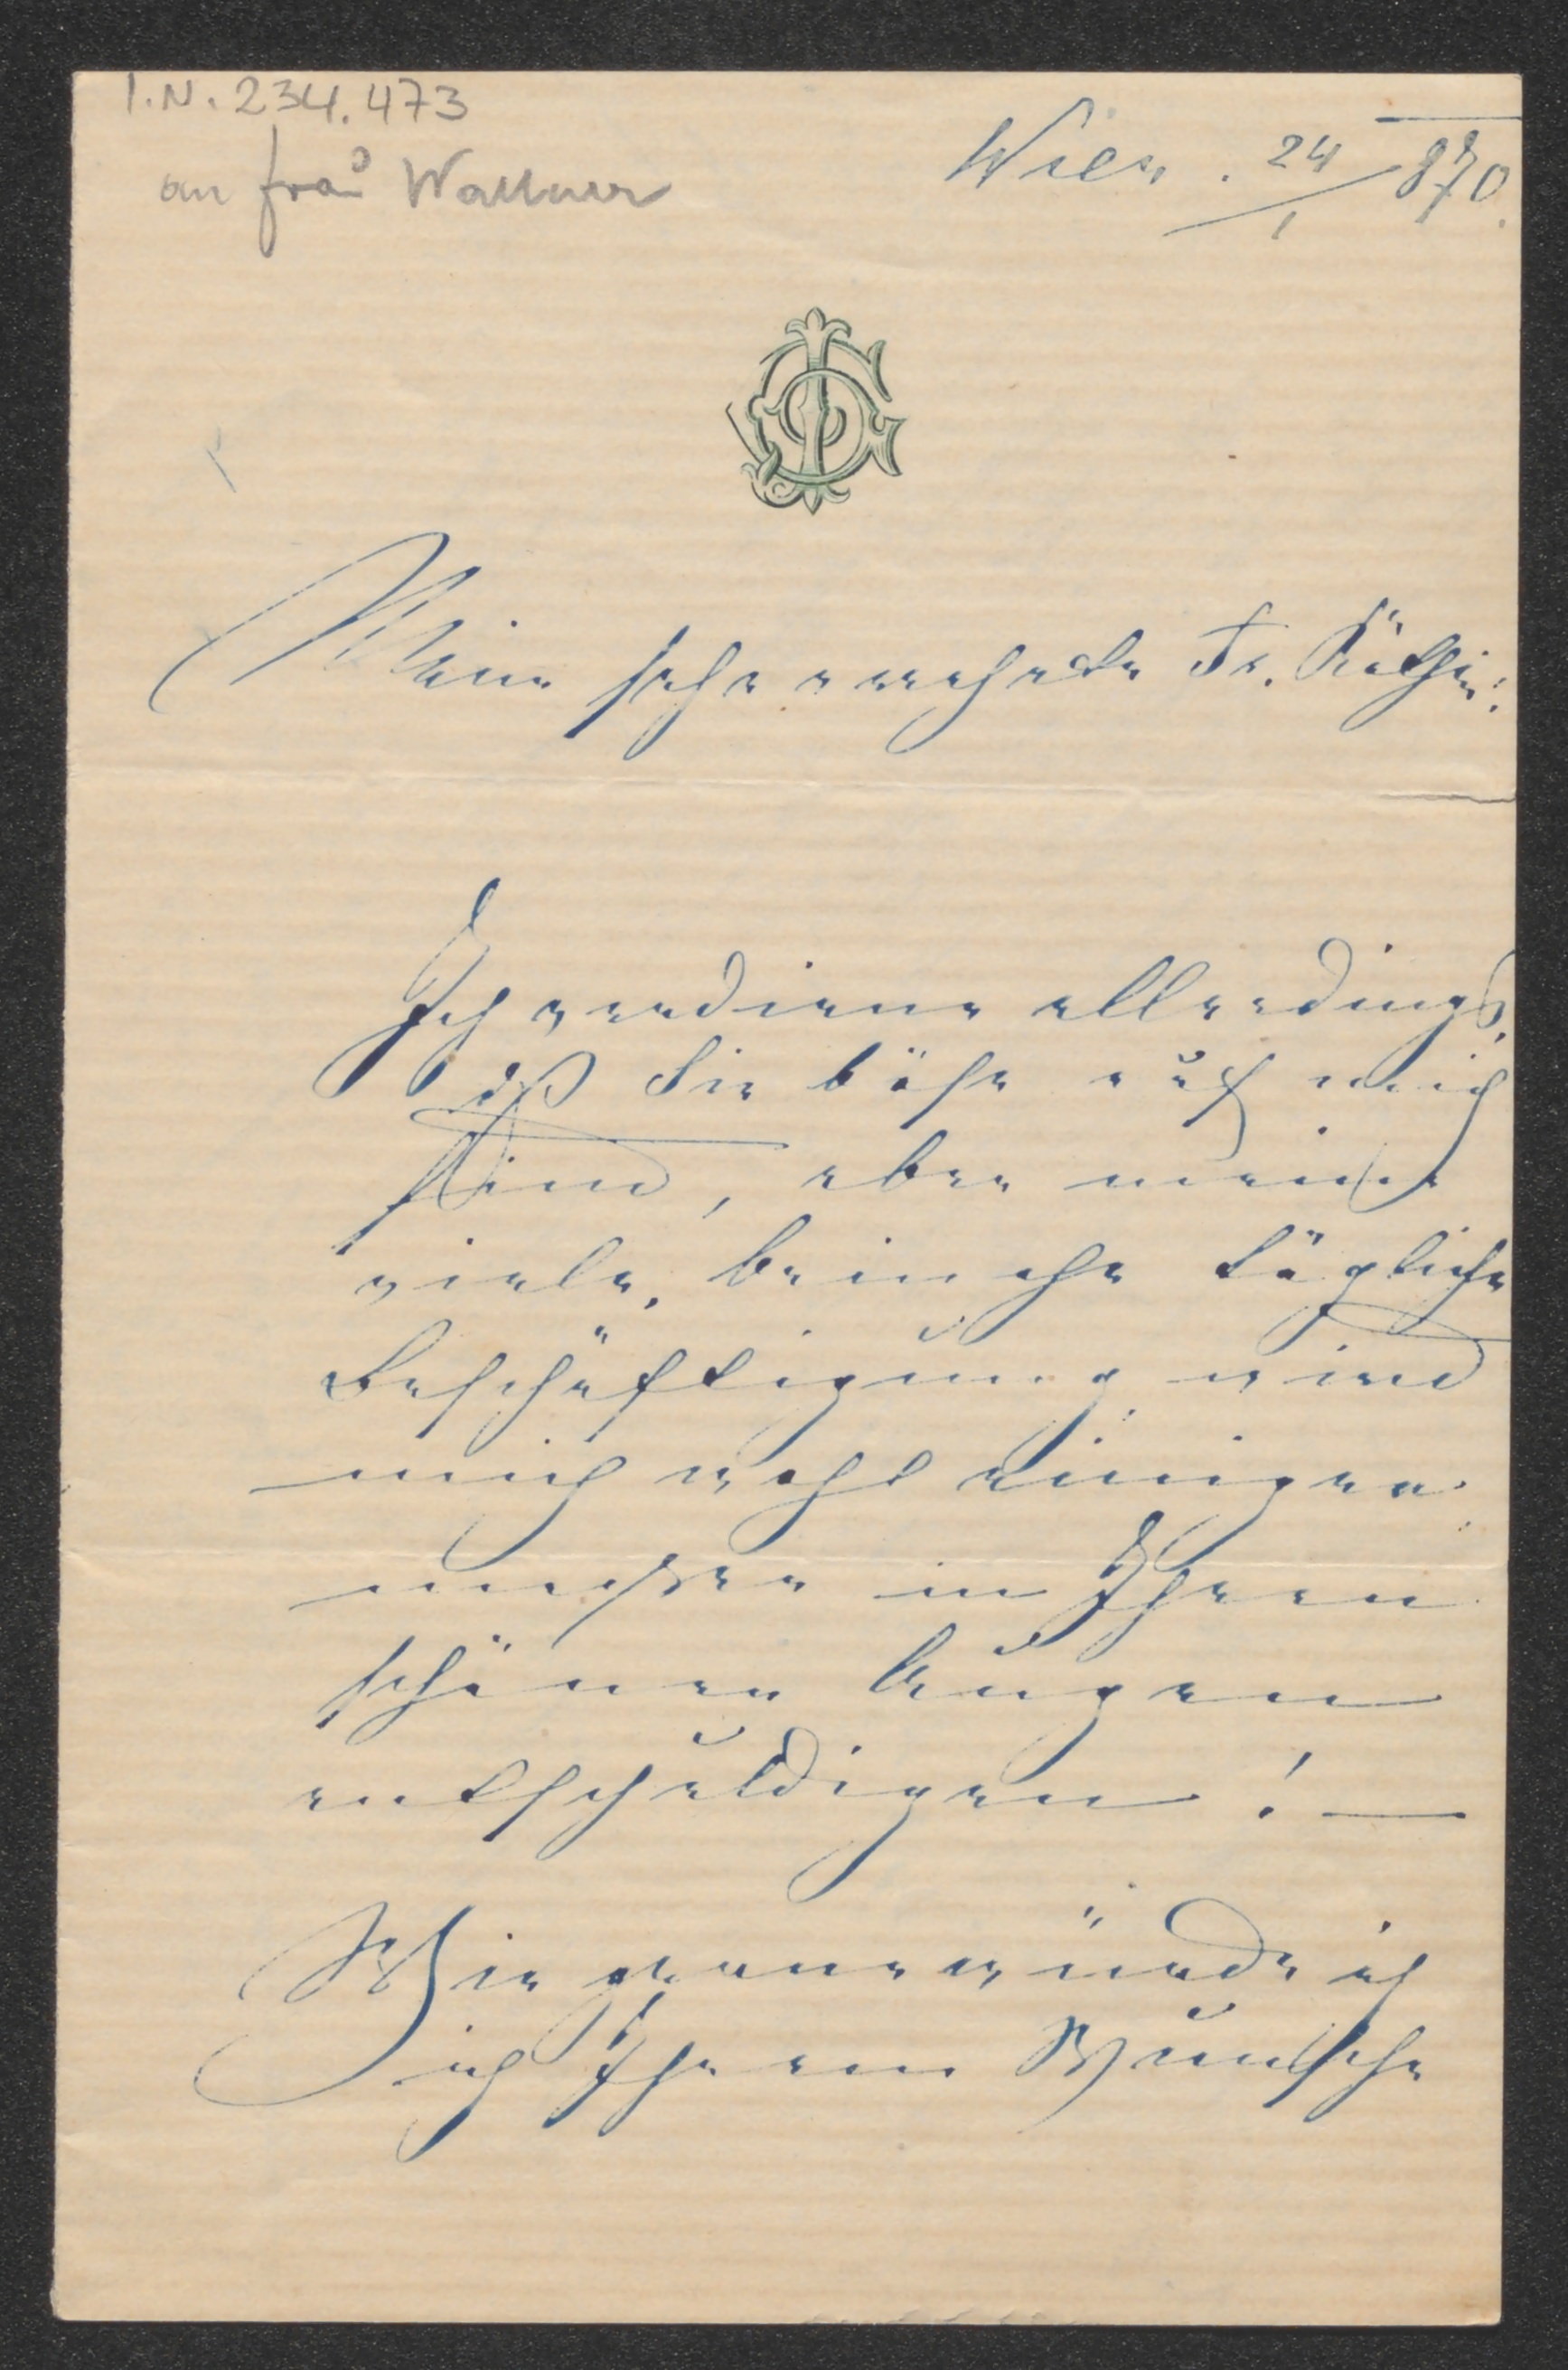 I.N. 234.473
an Frau Wallner
Wien. 24/1 870.
JG
Meine sehr verehrte Fr. Räthin!
Ich verdiene allerdings,
dß Sie böse auf mich
sind, aber meine
viele, beinahe tägliche
Beschäftigung wird
mich wohl einiger
maßen in Ihren
schönen Augen
entschuldigen! —
Wie gerne würde ich
ich Ihrem Wunsche